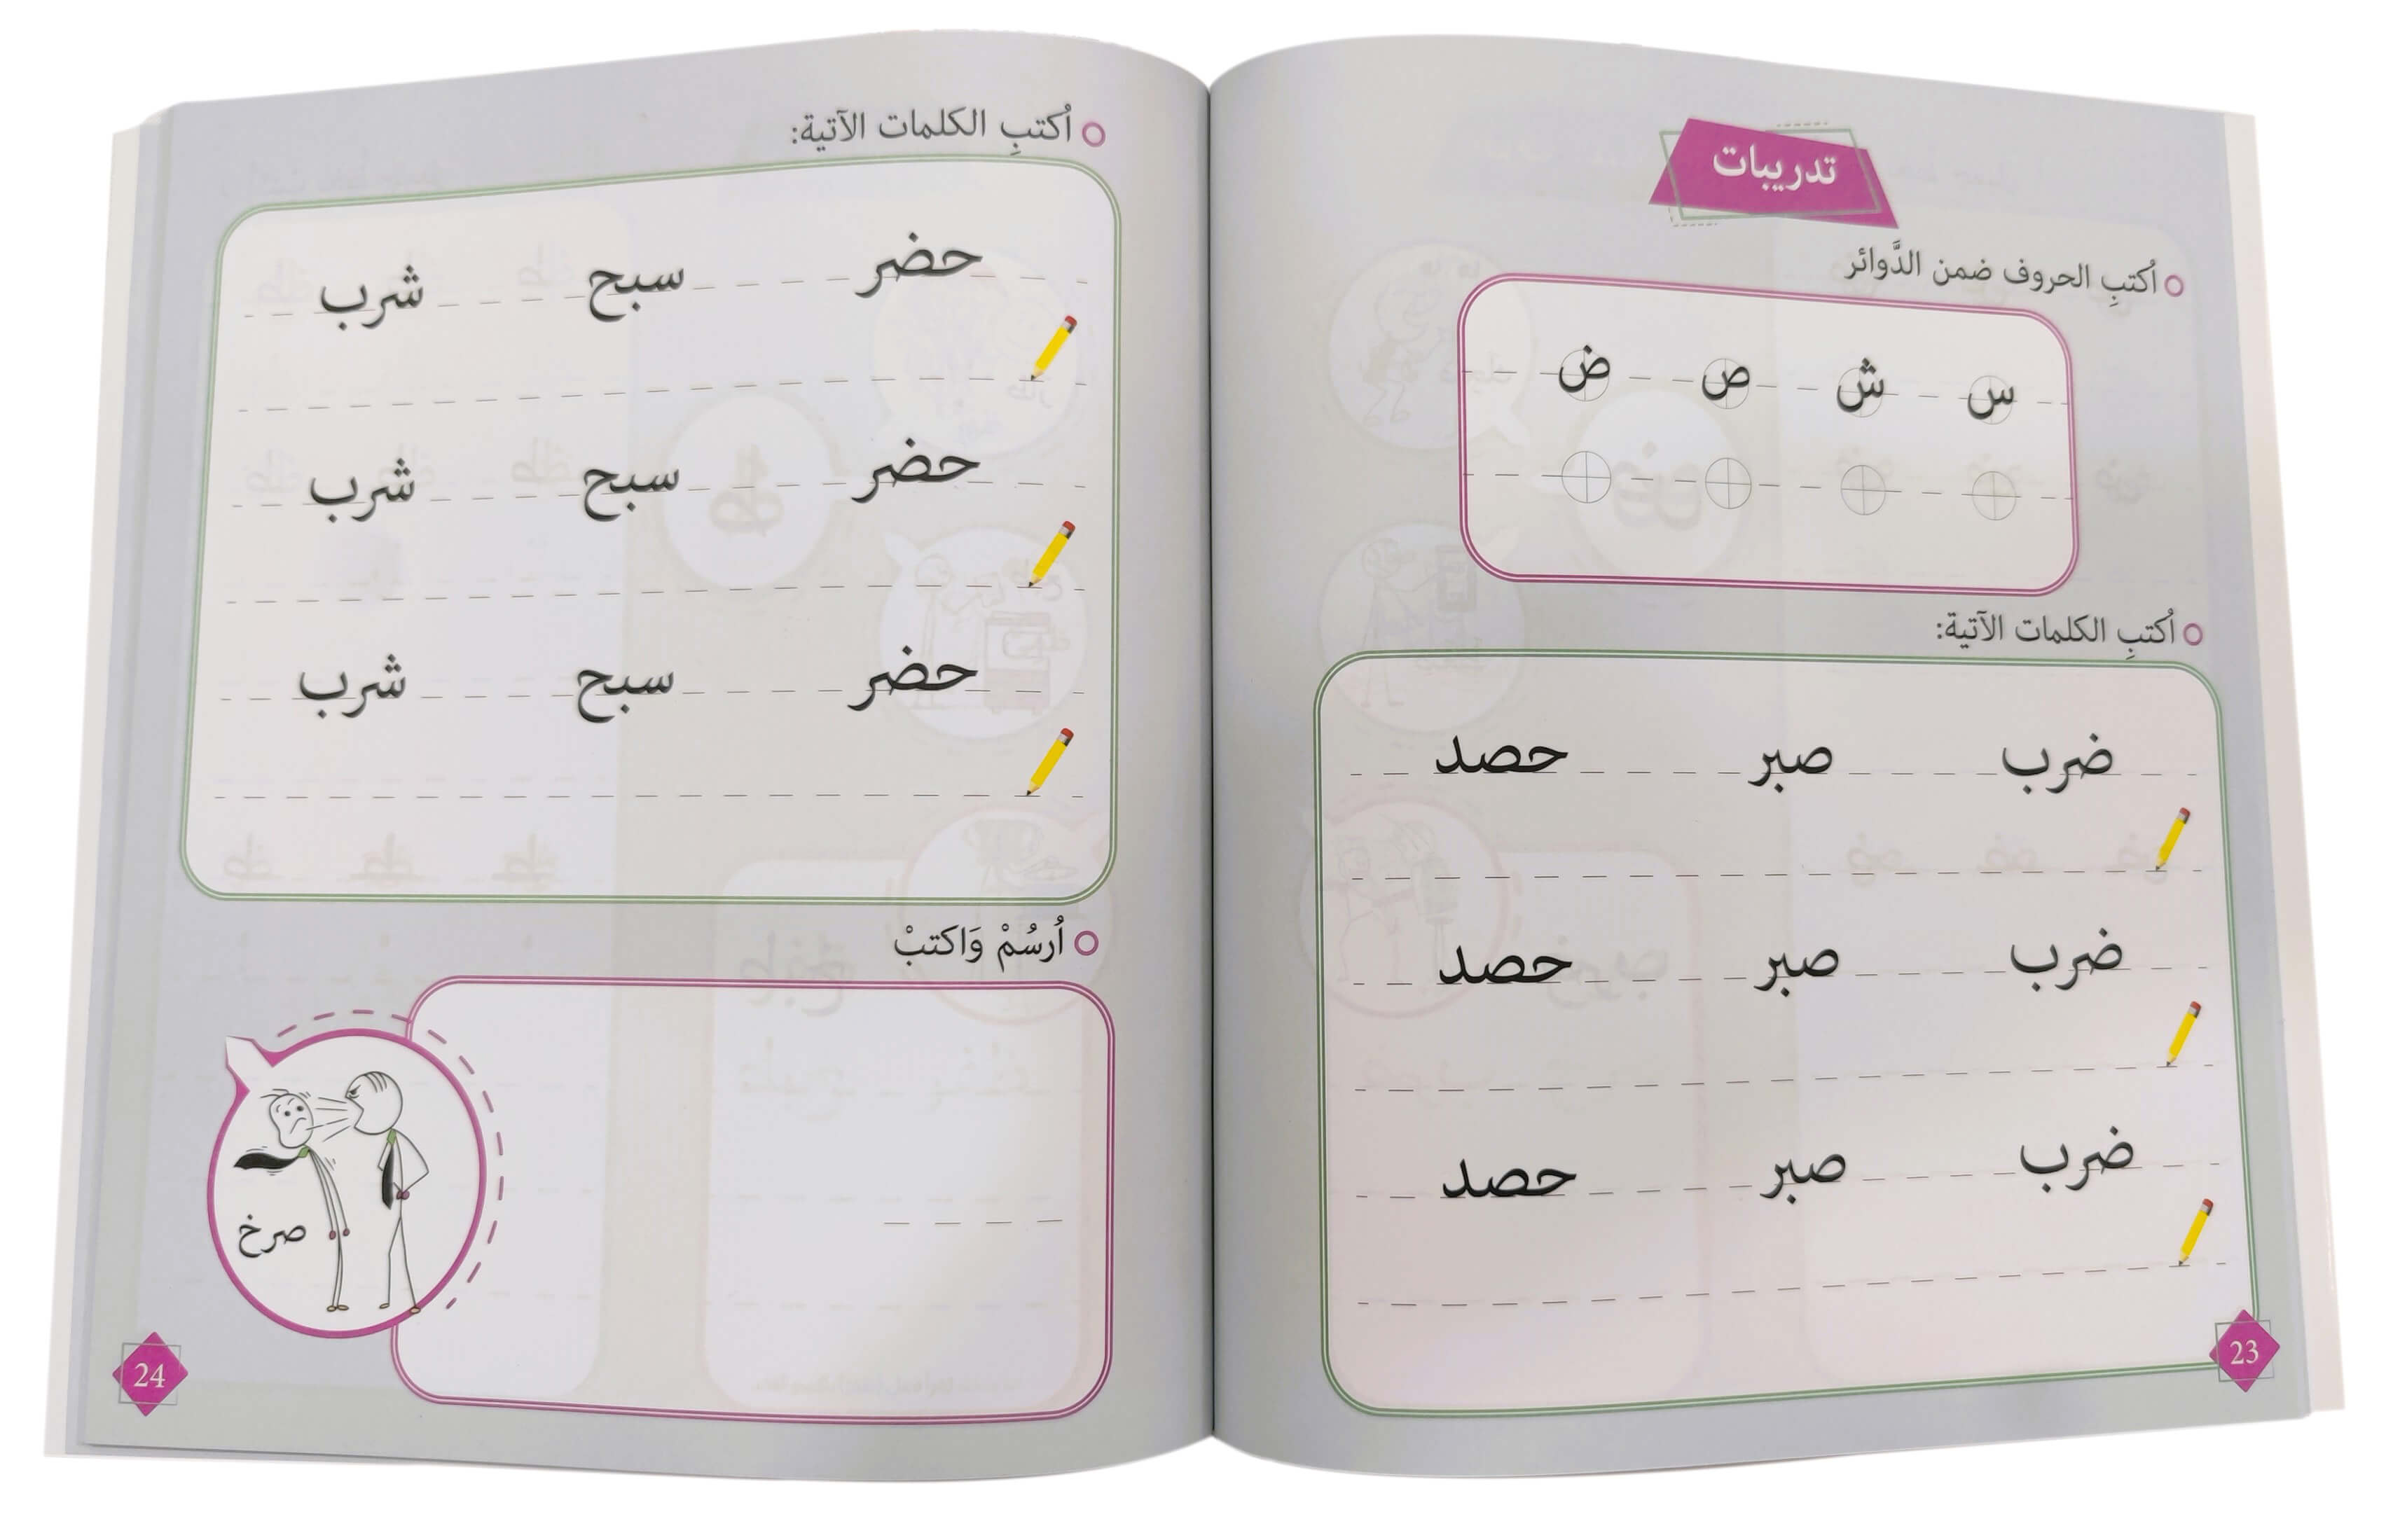 تدريبات
اُكتبِ الحروف ضمن الدَّوائر
س ش ص ض
اُكتبِ الكلمات الآتية:
ضرب صبر حصد
ضرب صبر حصد
ضرب صبر حصد
23
اُكتبِ الكلمات الآتية:
حضر سبح شرب
حضر سبح شرب
حضر سبح شرب
اُرسُمْ وَاكتبْ
صرخ
24